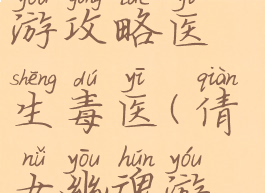 yóu gōng lüè yī
游攻略医
shēng dú yī qiàn
生毒医(倩
nǚ yōu hún yóu
女幽魂游